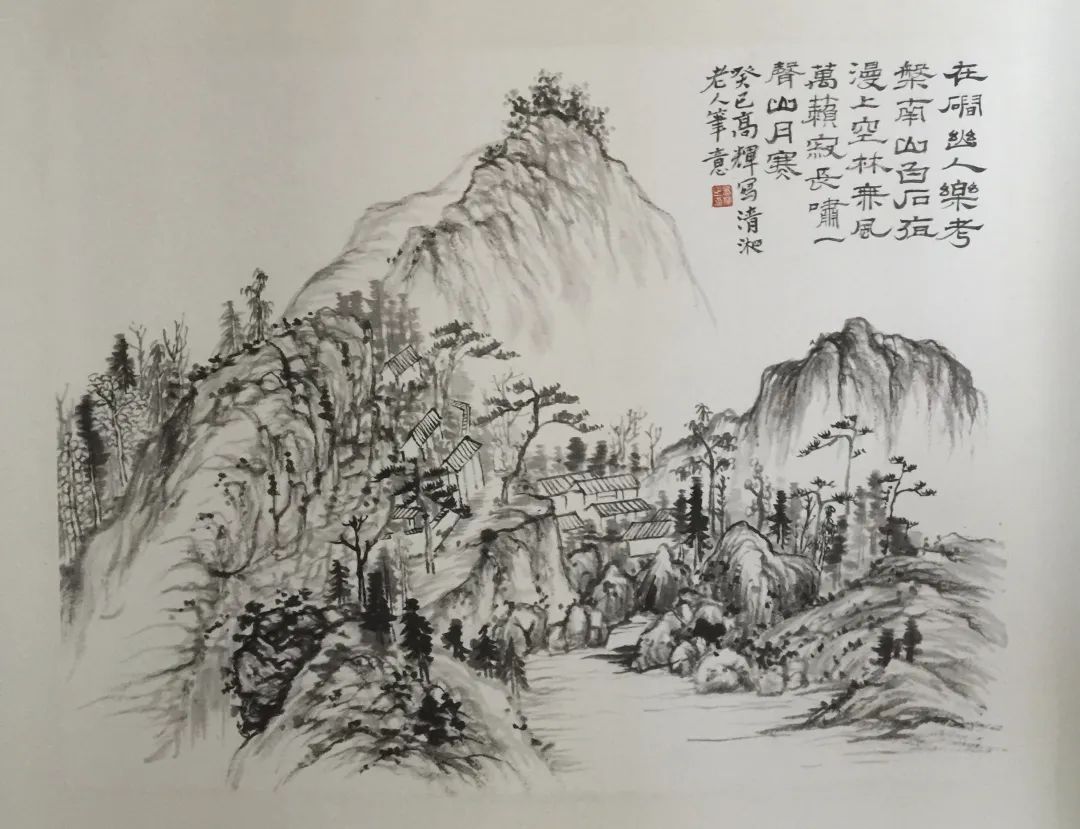 在磵幽人樂考
槃南山白石夜
漫々空林無風
萬籟寂長嘯一
聲山月寒
癸巳高輝寫清湘
老人筆意